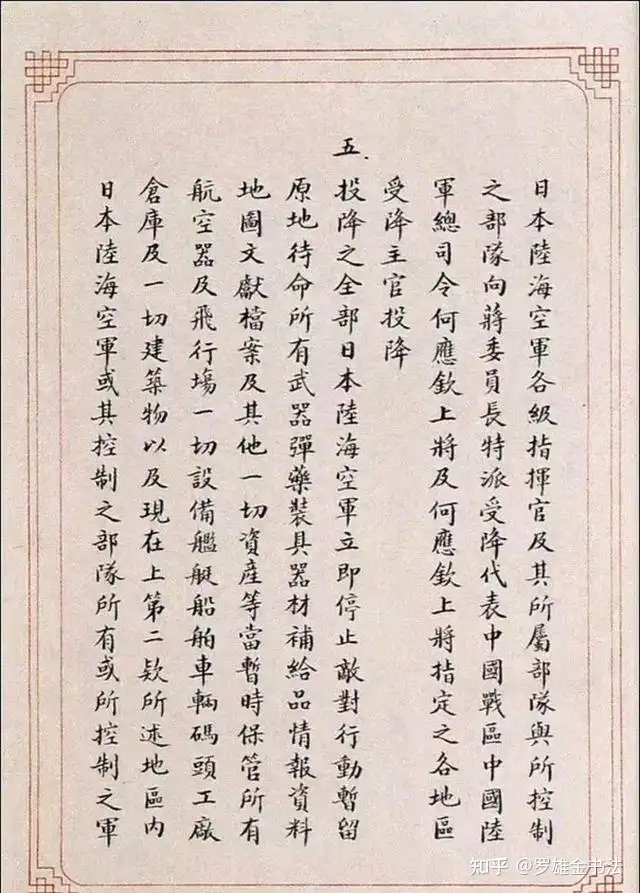 日本陸海空軍各級指揮官及其所屬部隊與所控制
之部隊向蔣委員長特派受降代表中國戰區中國陸
軍總司令何應欽上將及何應欽上將指定之各地區
受降主官投降
五.
投降之全部日本陸海空軍立即停止敵對行動暫留
原地待命所有武器彈藥裝具器材補給品情報資料
地圖文獻檔案及其他一切資產等當暫時保管所有
航空器及飛行場一切設備艦艇船舶車輛碼頭工廠
倉庫及一切建築物以及現在上第二欵所述地區内
日本陸海空軍或其控制之部隊所有或所控制之軍
知乎 @罗雄金书法